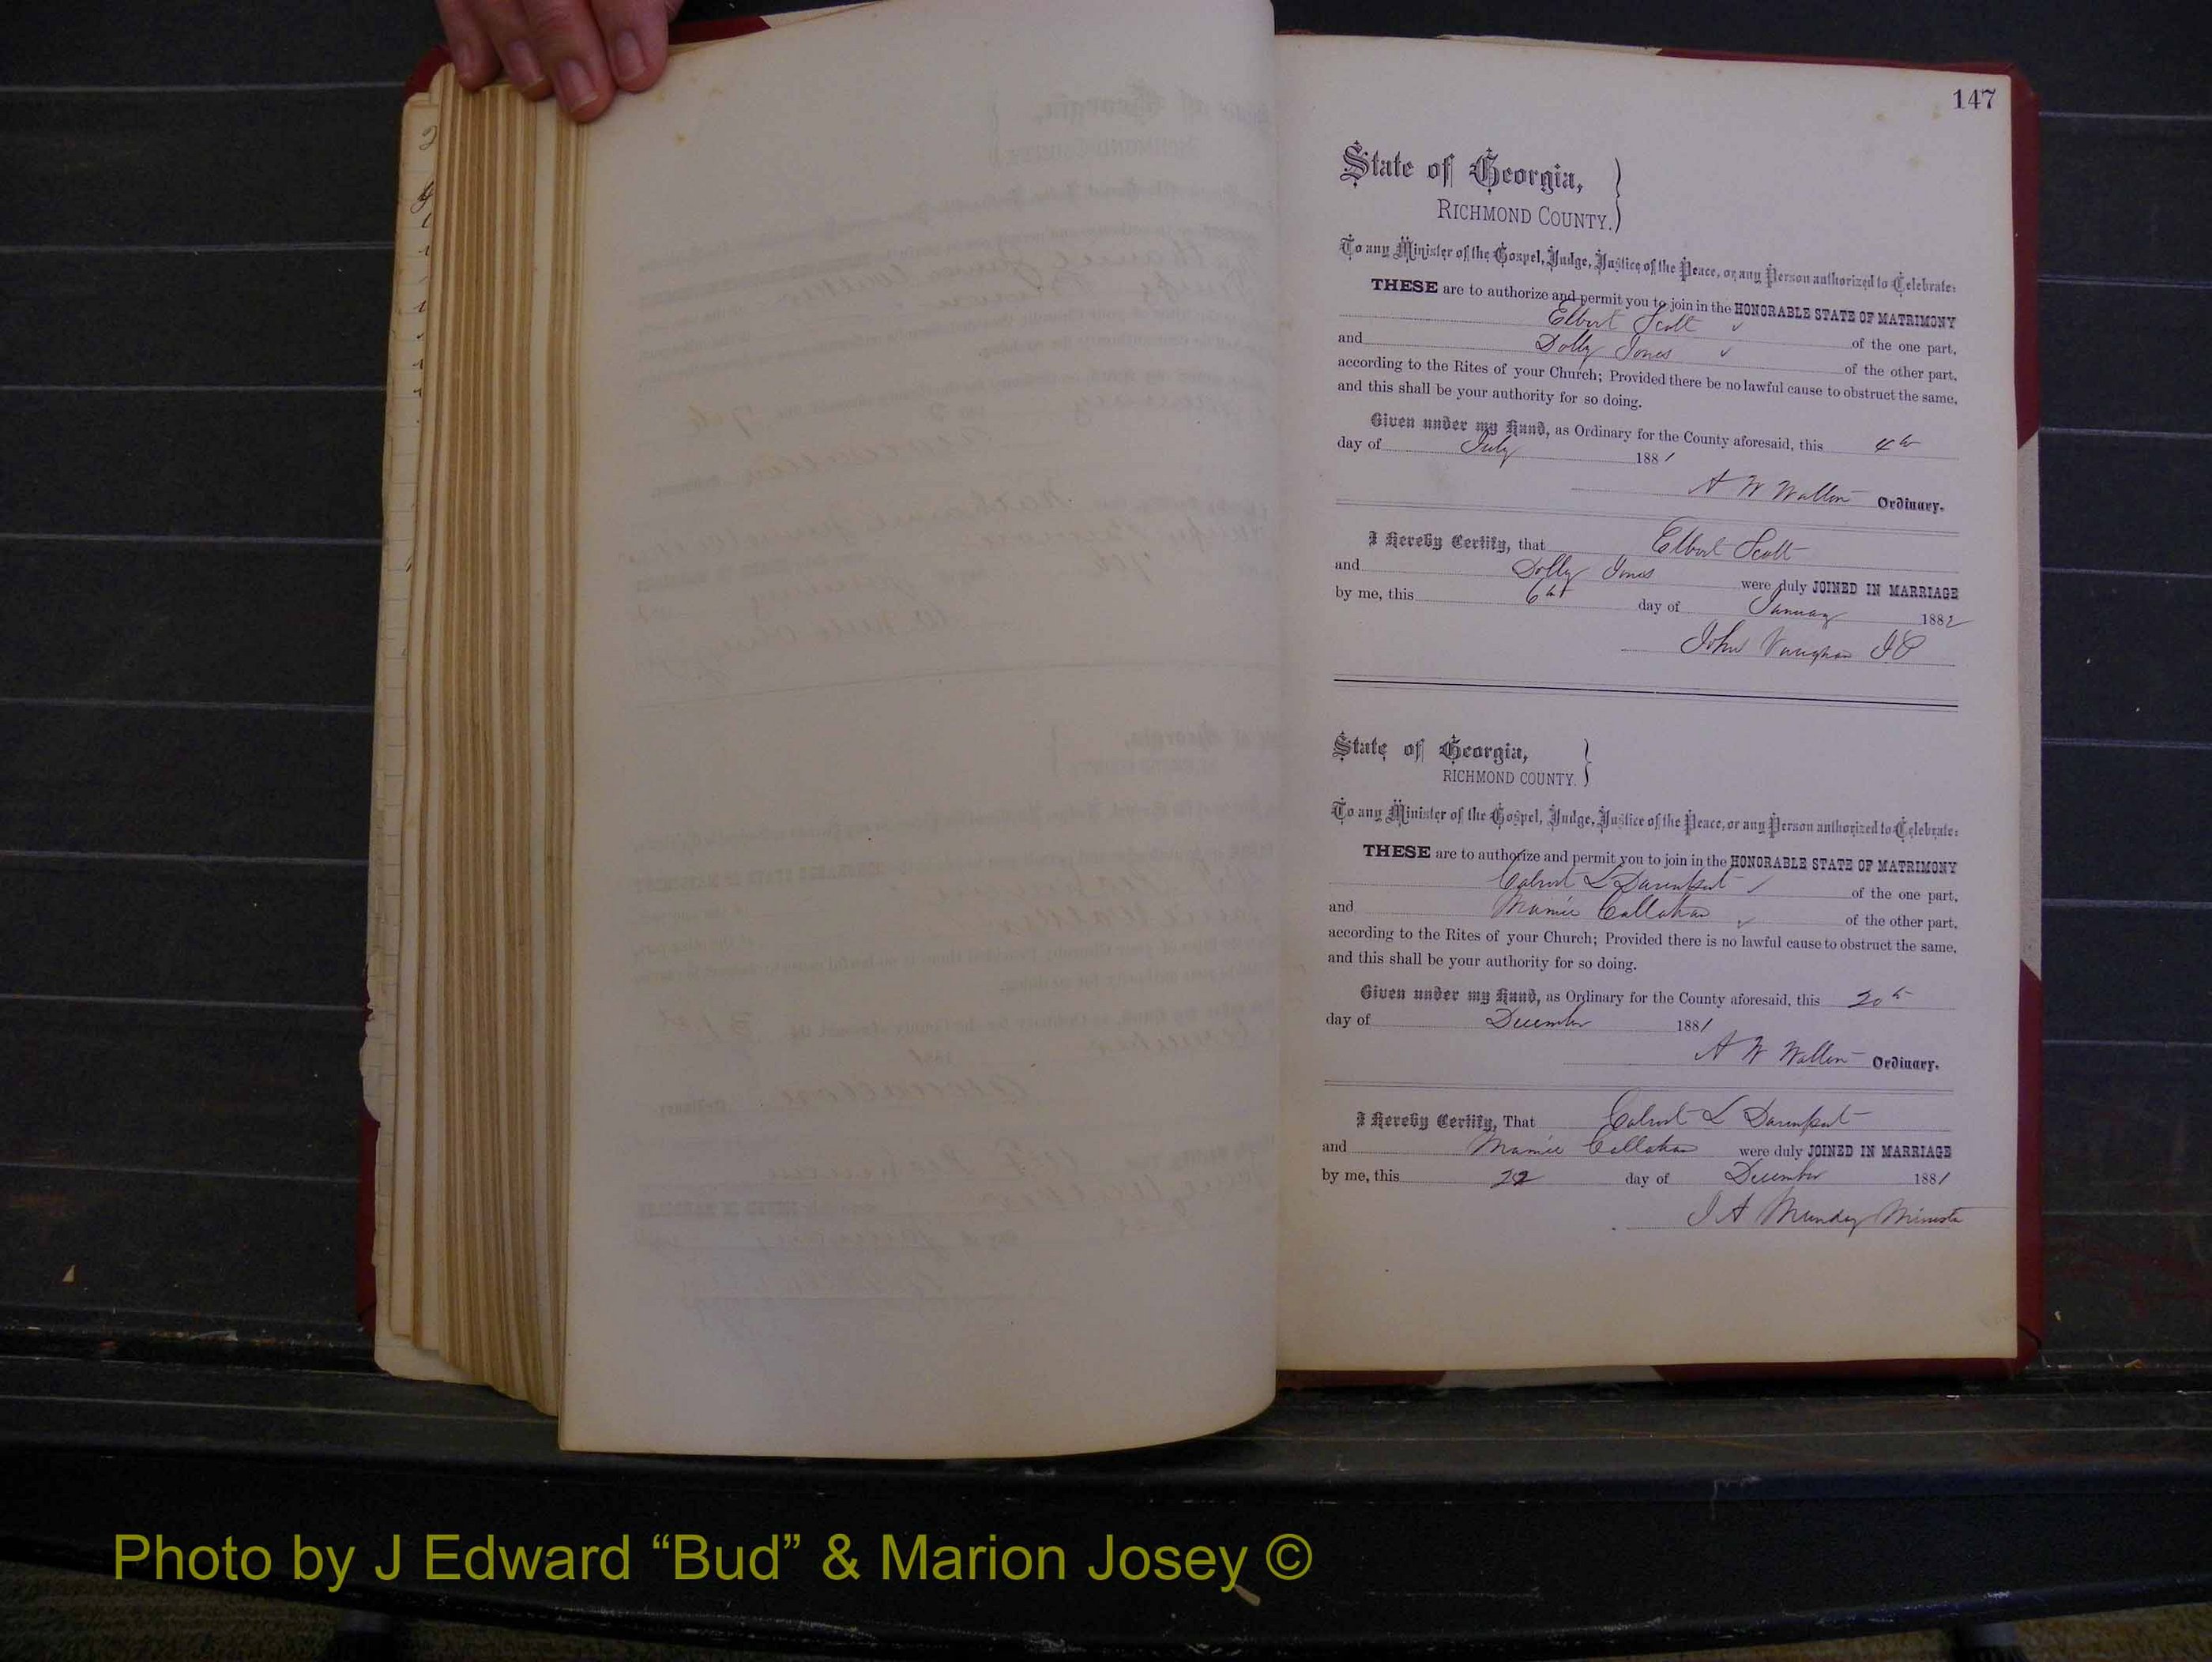 147
State of Georgia,
RICHMOND COUNTY.
To any Minister of the Gospel, Judge, Justice of the Peace, or any Person authorized to Celebrate:
THESE are to authorize and permit you to join in the HONORABLE STATE OF MATRIMONY
Elbert Scott of the one part,
and Dolly Jones of the other part,
according to the Rites of your Church; Provided there be no lawful cause to obstruct the same,
and this shall be your authority for so doing.
Given under my Hand, as Ordinary for the County aforesaid, this 4th
day of July 1881
A W Walton Ordinary.
I Hereby Certify, that Elbert Scott
and Dolly Jones were duly JOINED IN MARRIAGE
by me, this 6th day of January 1882
John Vaughan JP
State of Georgia,
RICHMOND COUNTY.
To any Minister of the Gospel, Judge, Justice of the Peace, or any Person authorized to Celebrate:
THESE are to authorize and permit you to join in the HONORABLE STATE OF MATRIMONY
L Davenport of the one part,
and Mamie Callahan of the other part,
according to the Rites of your Church; Provided there is no lawful cause to obstruct the same,
and this shall be your authority for so doing.
Given under my Hand, as Ordinary for the County aforesaid, this 20th
day of December 1881
A W Walton Ordinary.
I Hereby Certify, That L Davenport
and Mamie Callahan were duly JOINED IN MARRIAGE
by me, this 22 day of December 1881
J A Munday Minister
Photo by J Edward “Bud” & Marion Josey ©